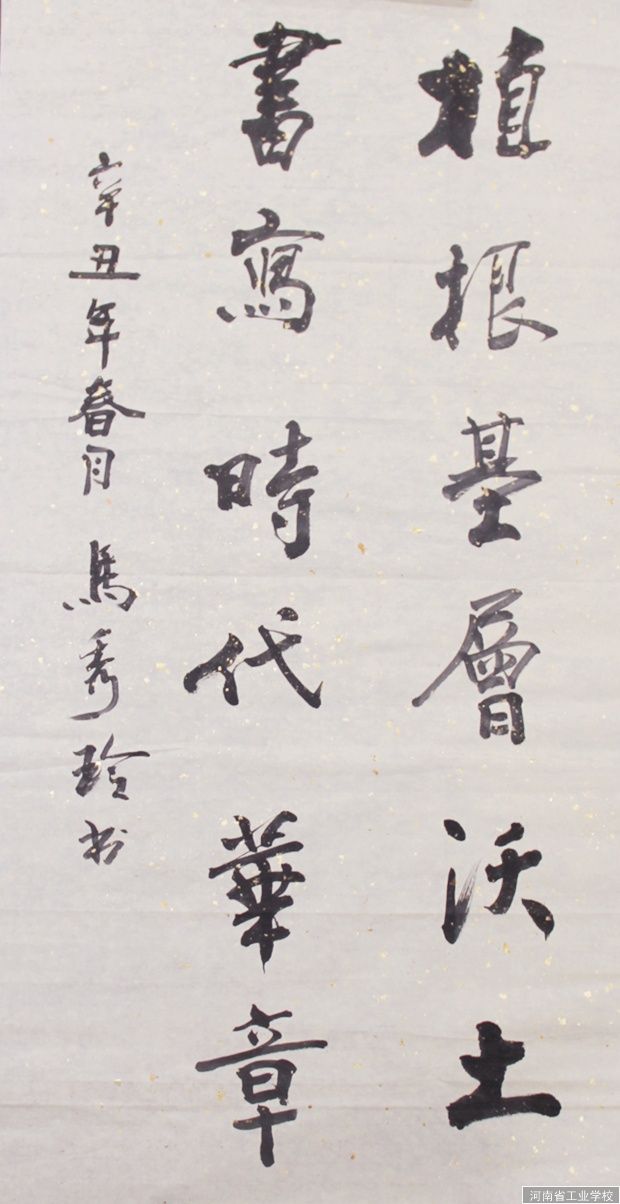 植根基層沃土
書寫時代華章
辛丑年春月 馬秀玲书
河南省工业学校